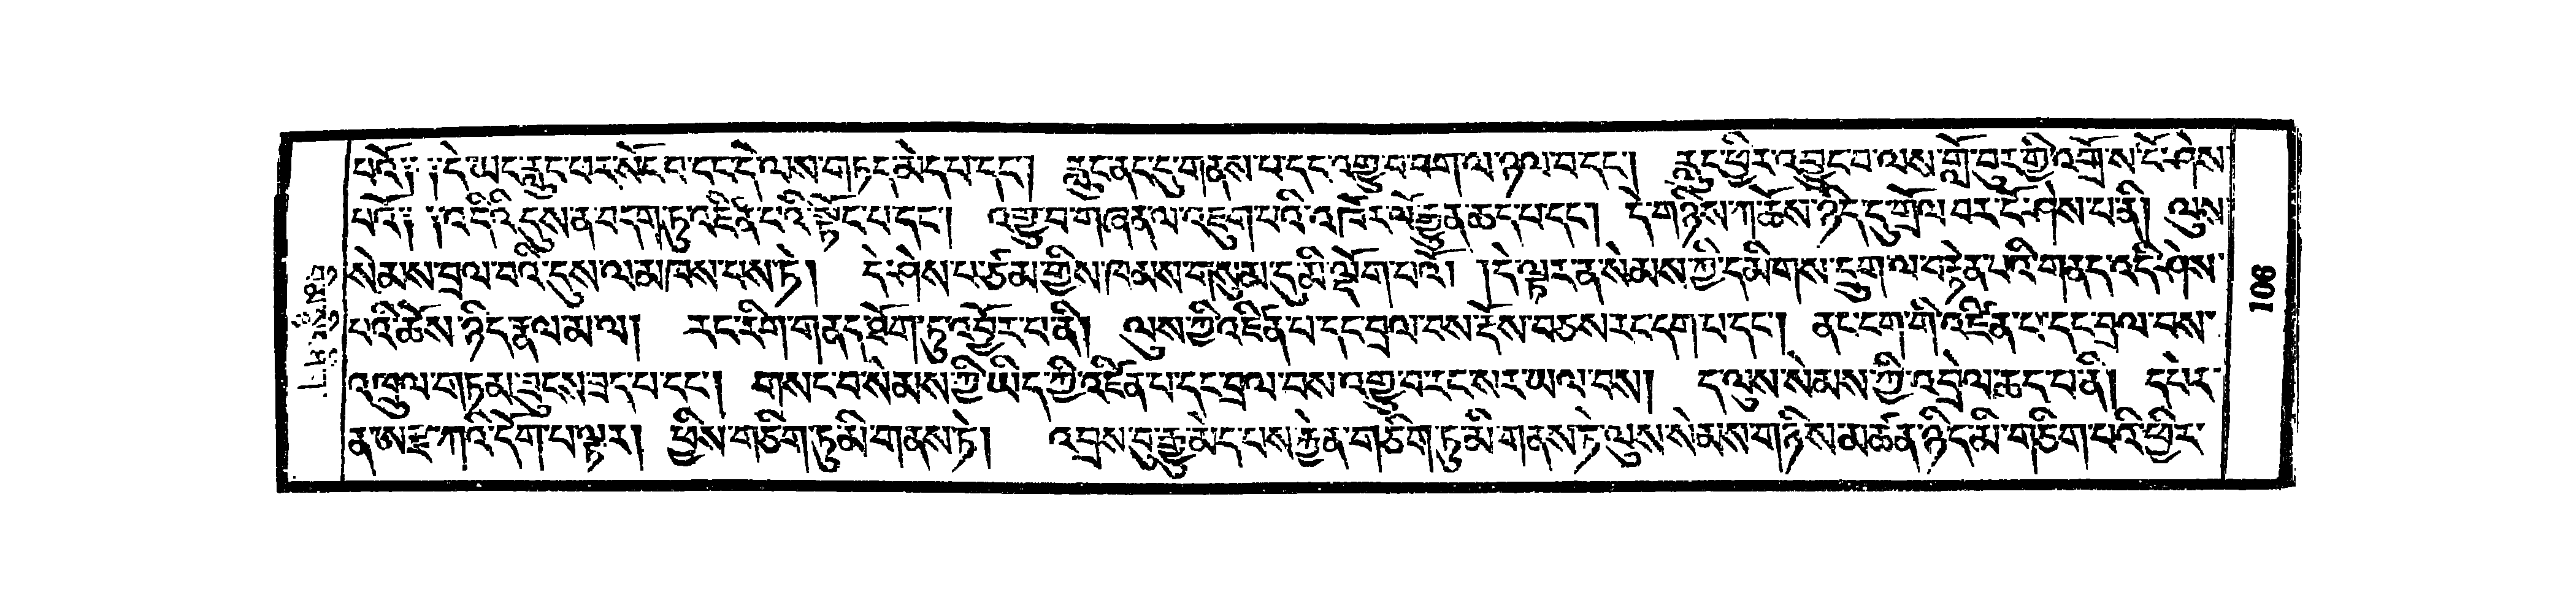 པའོ༔ ༔དེ་ཡང་རླུང་བར་སེང་བ་དང་དེ་ལས་གཏད་མེད་པ་དང་། རླུང་ནད་དུ་གནས་པ་དང་འགྱུ་བ་བག་ལ་ཉལ་བ་དང་། རླུང་ཕྱིར་འབྱུང་བ་ལས་གློ་བུར་གྱི་འགྲོ་ས་ངོ་ཤེས་
པའོ༔ ༔འདིའི་དུས་ན་བདག་ཏུ་འཛིན་པའི་སྟོད་པ་དང་། འགྱུ་བ་གཞན་ལ་འཇུག་པའི་འཁོར་ལོ་རྒྱུན་ཆད་པ་དང་། དེ་གཉིས་ཀ་ཆོས་ཉིད་དུ་གྲོལ་བར་ངོ་ཤེས་པ་ནི། ལུས་
སེམས་བྲལ་བའི་དུས་ལ་མཁས་པས་ཏེ། དེ་ཤེས་པ་ཙམ་གྱིས་ཁམས་གསུམ་དུ་མི་ལྡོག་པའོ། །དེ་ལྟར་ན་སེམས་ཀྱི་དམིགས་དྲུག་ལ་བརྟེན་པའི་གནད་འདི་ཤེས་
པའི་ཆོས་ཉིད་རྣལ་མ་ལ། རང་རིག་གནད་ཐོག་ཏུ་འབྱོར་བ་ནི། ལུས་ཀྱི་འཛིན་པ་དང་བྲལ་བས་ངོས་བཅས་རང་དག་པ་དང་། ནང་ངག་གི་འཛིན་པ་དང་བྲལ་བས་
འཁྲུལ་གཏམ་ཟུངས་ཟད་པ་དང་། གསང་བ་སེམས་ཀྱི་ཡིད་ཀྱི་འཛིན་པ་དང་བྲལ་བས་འགྱུ་བ་རང་སར་ཡལ་བས། ད་ལུས་སེམས་ཀྱི་འབྲེལ་ཆད་པ་ནི། དཔེར་
ན་ཨ་རྫ་ཀའི་དོག་པ་ལྟར། ཕྱིས་གཅིག་ཏུ་མི་གནས་ཏེ། འབྲས་བུ་རྒྱུ་མེད་པས་རྐྱེན་གཅིག་ཏུ་མི་གནས་ཏེ་ལུས་སེམས་གཉིས་མཚན་ཉིད་མི་གཅིག་པའི་ཕྱིར་
༤༠༡